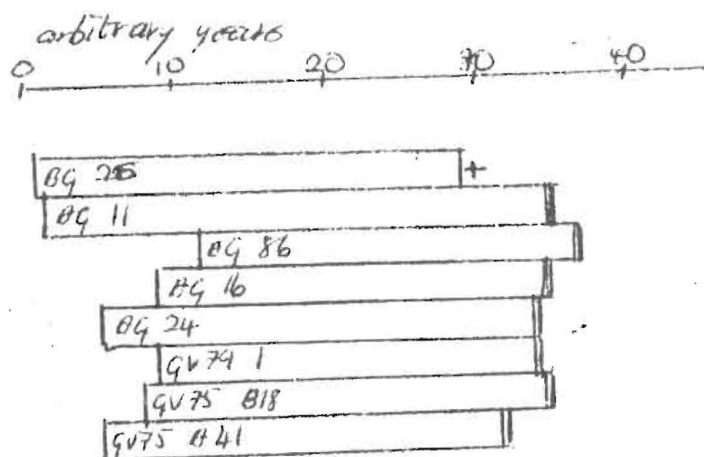 arbitrary years
0 10 20 30 40
BG 25 +
BG 11
BG 86
BG 16
BG 24
GV79 1
GV75 B18
GV75 A41